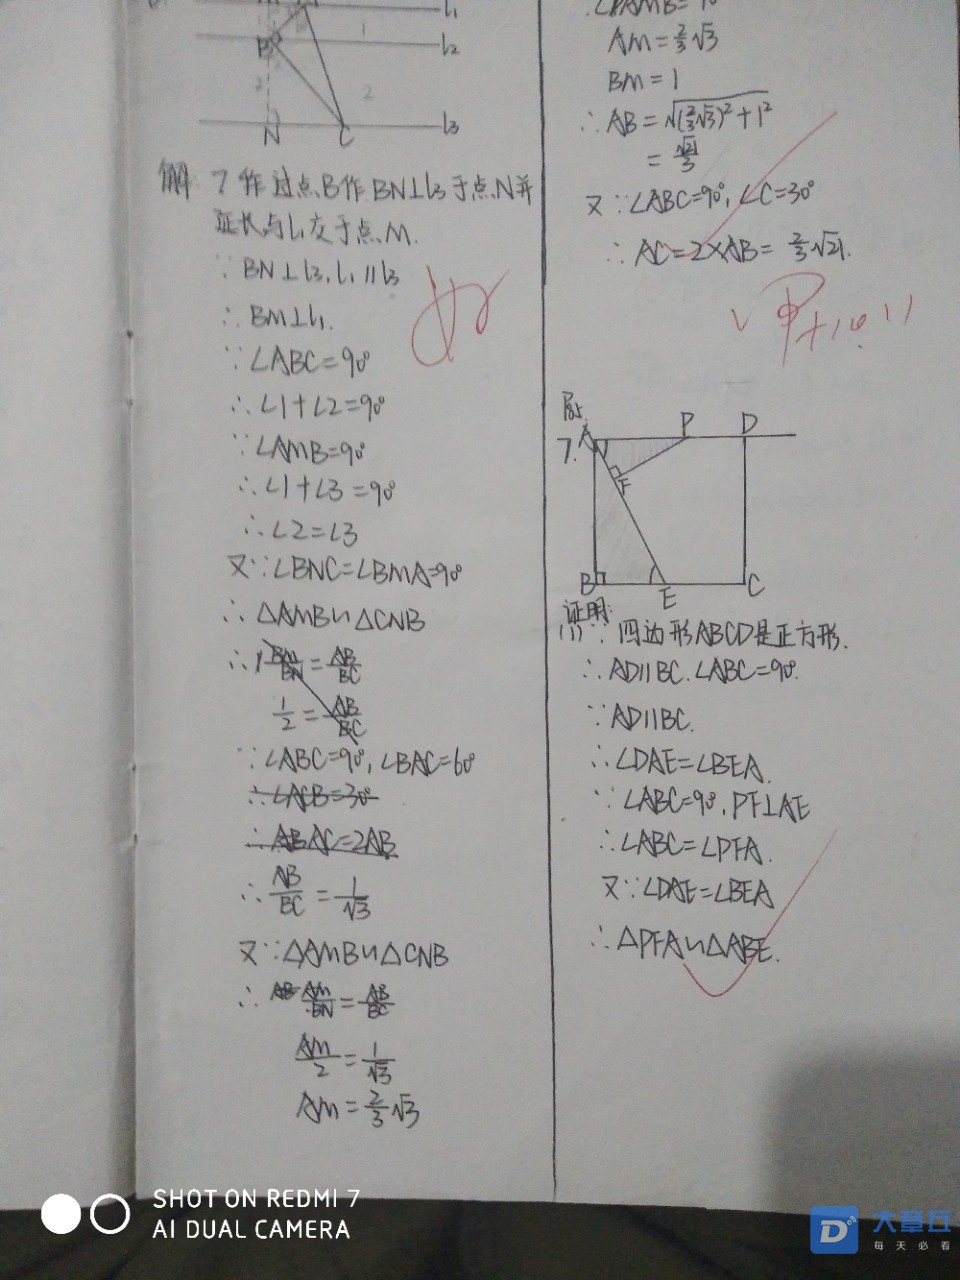 l₁
B
1
l₂
2
2
N
C
l₃
解
7 作过点B作BN⊥l₃于点N并
延长与l₁交于点M.
∵BN⊥l₃, l₁∥l₃
∴BM⊥l₁.
∵∠ABC=90°
∴∠1+∠2=90°
∵∠AMB=90°
∴∠1+∠3=90°
∴∠2=∠3
又∵∠BNC=∠BMA=90°
∴△AMB∽△CNB
∴BM/BN=AB/BC
1/2=AB/BC
∵∠ABC=90°, ∠BAC=60°
∴∠ACB=30°
∴AB AC=2AB
∴AB/BC=1/√3
又∵△AMB∽△CNB
∴AB AM/BN=AB/BC
AM/2=1/√3
AM=2/3√3
AM=2/3√3
BM=1
∴AB=√((2/3√3)²+1²)
=√21/3
又∵∠ABC=90°, ∠C=30°
∴AC=2×AB=2/3√21.
好
7.
A
P
D
F
B
E
C
证明:
(1)∵四边形ABCD是正方形.
∴AD∥BC.∠ABC=90°.
∵AD∥BC.
∴∠DAE=∠BEA.
∵∠ABC=90°,PF⊥AE
∴∠ABC=∠PFA.
又∵∠DAE=∠BEA
∴△PFA∽△ABE.
SHOT ON REDMI 7
AI DUAL CAMERA
D
大章丘
每天必看